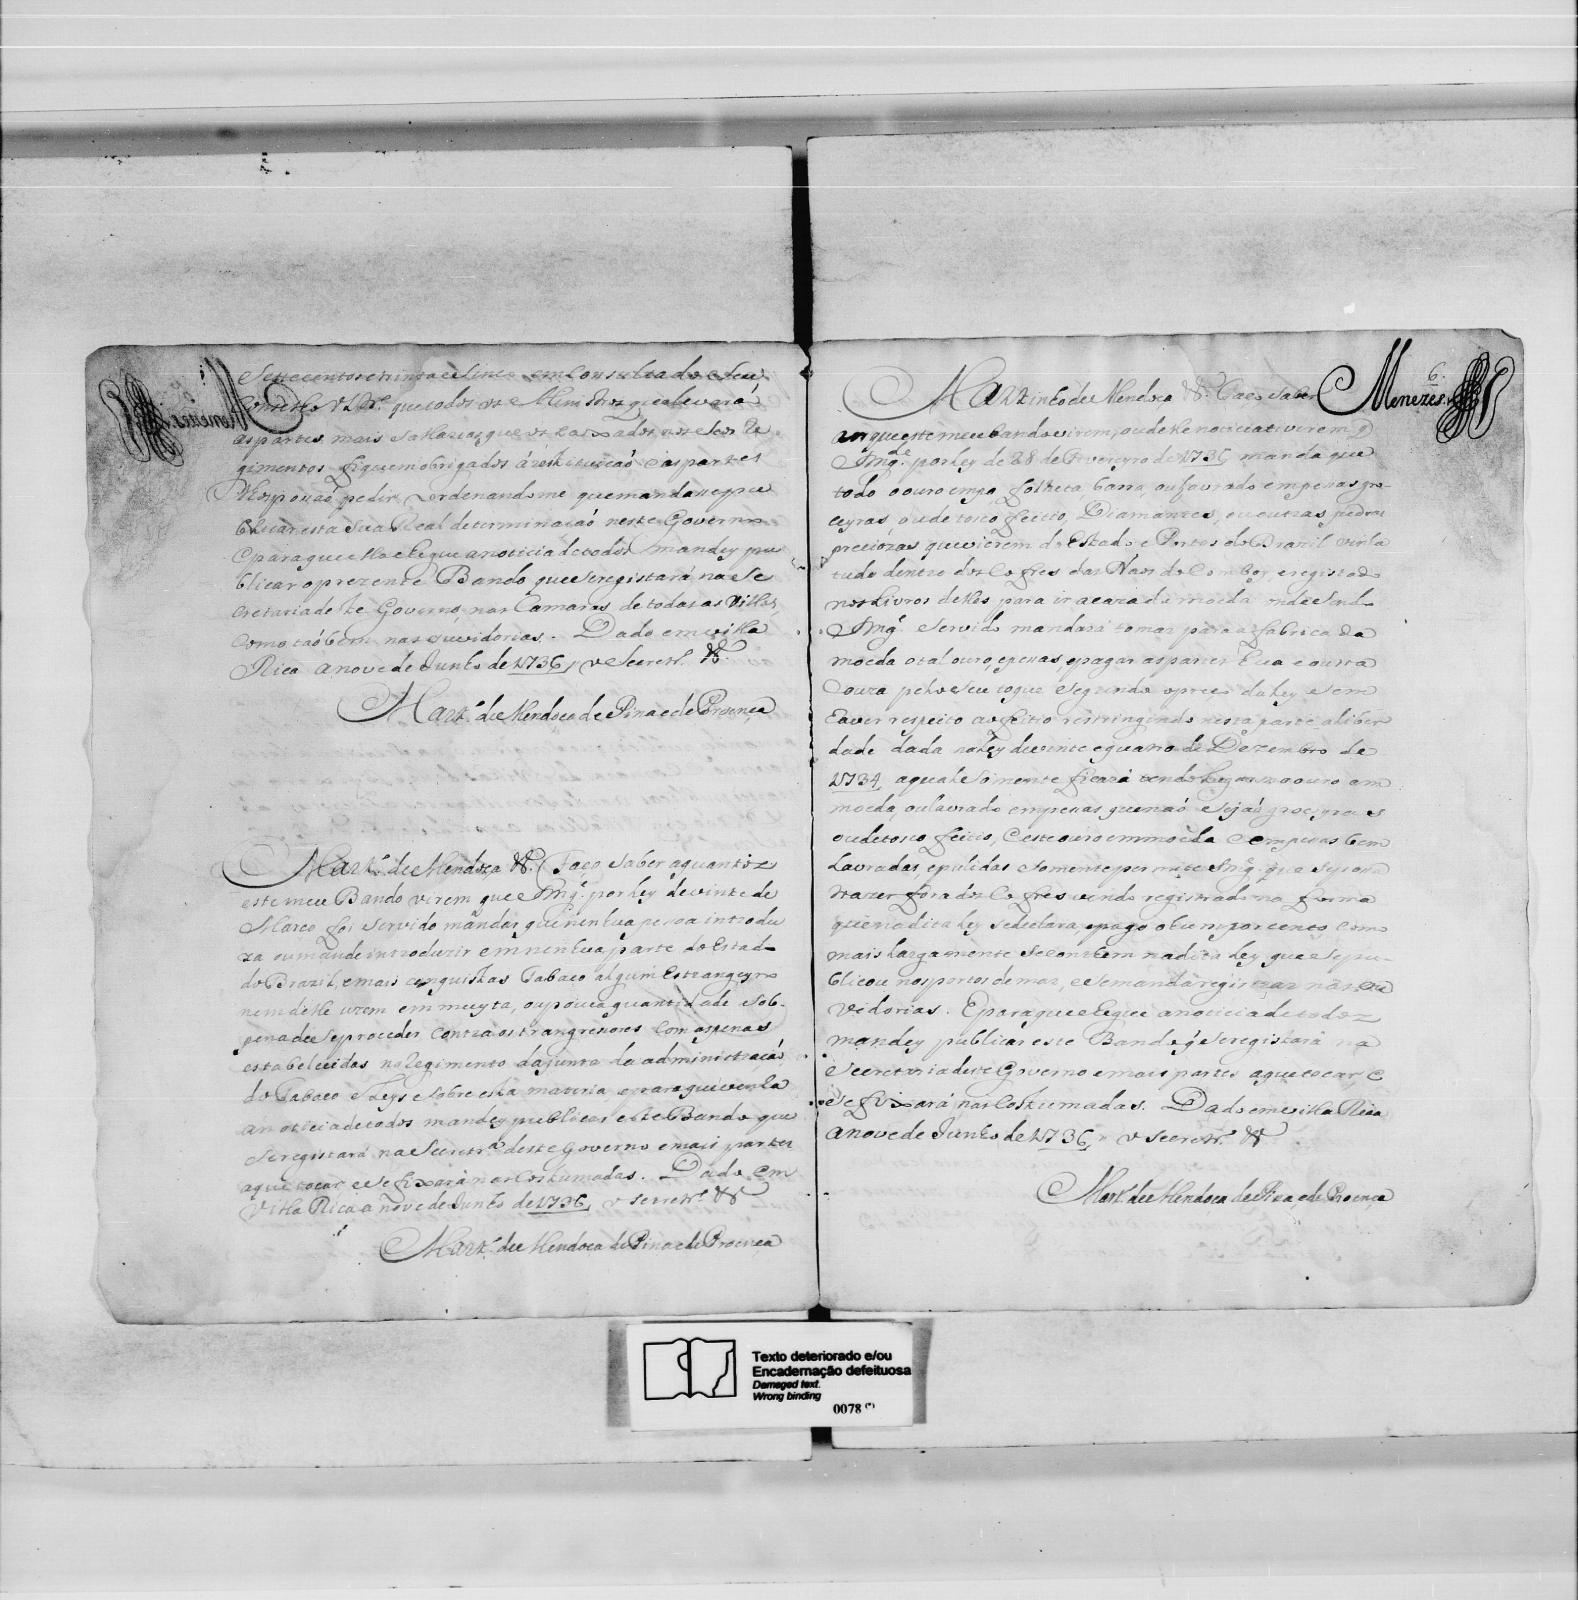 Settecentos etrinta e Sinco em Consulta do Seu
Conselho Ultr.º que todos os Menistros que levará
as partes mais Sallarios, que os taxados nos Seos Re
gimentos fiquem obrigados á restituicaó e as partes
lhos possaó pedir, ordenandome que mandasse pu
blicar esta Sua Real determinaçaó neste Governo
E para que chegue a noticia de todos mandey pu
blicar o prezente Bando, que Se registará na Se
cretaria deste Governo, nas Camaras de todas as Villas,
como taóbem nas ouvidorias. Dado em villa
Rica a nove de Junho de 1736, o Secretr.º &
Mart.º de Mendoça de Pina e de Proença
Mart.º de Mendoça &. Faço Saber a quantos
este meu Bando virem que S Mg.e por ley de vinte de
Março foi Servido mandar, que nenhua pessoa introdu
za ou mande introduzir em nenhua parte do Estado
do Brazil, e mais conquistas Tabaco algum Estrangeyro
nem delle uzem em muyta, ou pouca quantidade Sob
pena de Se proceder contra os transgressores com as penas
estabelecidas no Regimento da junta da administraçaó
do Tabaco e Leys Sobre esta materia, e para que venha
a noticia de todos mandey publicar este Bando que
Se registará na Secretr.ª deste Governo e mais partes
a que tocar, e Se fixará nas Costumadas. Dado em
Villa Rica a nove de Junho de 1736, o Secretr.º &
Mart.º de Mendoça de Pina e de Proença
6.
Menezes
Martinho de Mendoça &. Faço Saber
aos que este meu bando virem, ou delle noticia tiverem q̃
S Mg.de por Ley de 28 de Fevereyro de 1736 manda que
todo o ouro em po, folheta, barra, ou lavrado em pessas gro-
ceyras, ou de tosco feitio, Diamantes, ou outras pedras
preciózas que vierem do Estado e Portos do Brazil virla
tudo dentro dos Cofres das Náos de Comboy, e registado
nos Livros delles para ir a caza da moeda, onde Sendo
S Mg.e Servido mandará tomar para a fabrica da
moeda o tal ouro, e pessas, e pagar as partes hua e outra
Couza pelo Seu toque Segundo o preço da Ley e Sem
haver respeito ao feitio restringindo nesta parte a liber
dade dada na Ley de vinte e quatro de Dezembro de
1734, a qual Sómente ficará tendo lugar no ouro em
moeda, ou lavrado em pessas, que naó Sejaó groceyras
ou de tosco feitio, E este ouro em moeda e em pessas bem
Lavradas, e pulidas Somente permite S Mg.e que Se possa
trazer fora dos Cofres vindo registrado na forma
que na dita Ley Se declara, e pago o hum por cento como
mais largamente Se contem na dita Ley que Se pu-
blicou nos portos de mar, e Se manda registrar nas ou
vidorias. E para que chegue a noticia de todos
mandey publicar este Bando q̃ Se registará na
Secretaria deste Governo e mais partes a que tocar, e
Se fixará nas Costumadas. Dado em villa Rica
a nove de Junho de 1736, o Secretr.º &
Mart.º de Mendoça de Pina, e de Proença
Texto deteriorado e/ou
Encadernação defeituosa
Damaged text.
Wrong binding
0078 (*)